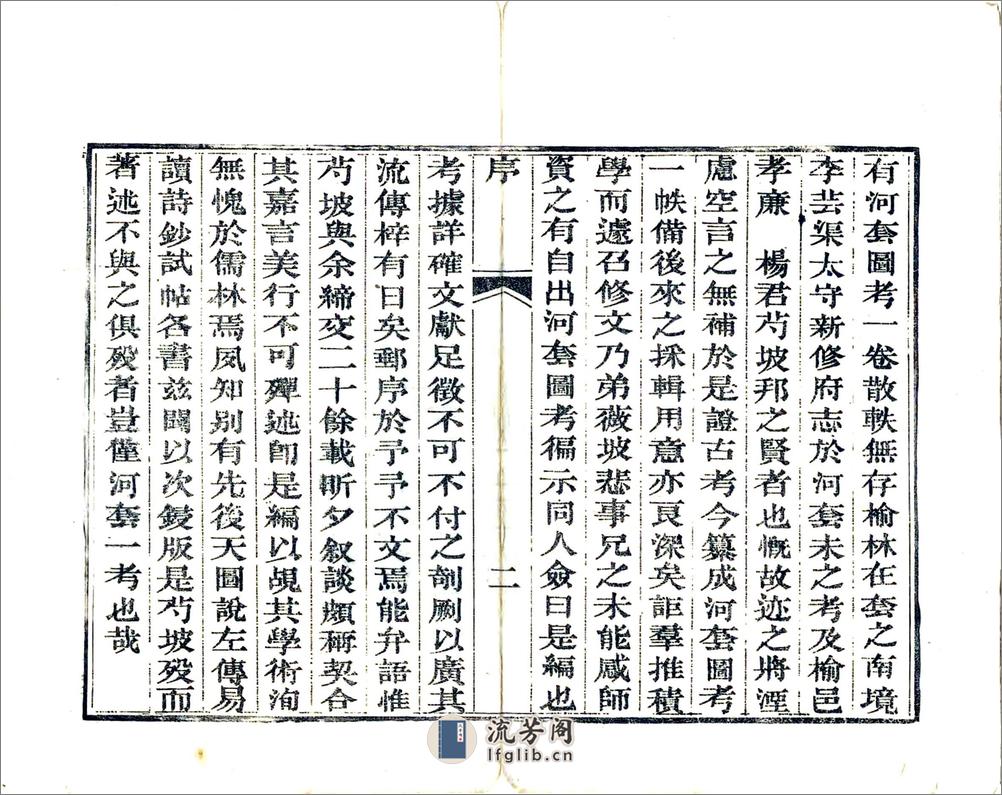 有河套圖考一卷散軼無存榆林在套之南境
李芸渠太守新修府志於河套未之考及榆邑
孝廉　楊君芍坡邦之賢者也慨故迹之將湮
慮空言之無補於是證古考今纂成河套圖考
一帙備後來之採輯用意亦良深矣詎羣推積
學而遽召修文乃弟薇坡悲事兄之未能感師
資之有自出河套圖考徧示同人僉曰是編也
序
二
考據詳確文獻足徵不可不付之剞劂以廣其
流傳梓有日矣郵序於予予不文焉能弁語惟
芍坡與余締交二十餘載昕夕叙談頗稱契合
其嘉言美行不可殫述卽是編以覘其學術洵
無愧於儒林焉夙知别有先後天圖說左傳易
讀詩鈔試帖各書兹闗以次鋟版是芍坡殁而
著述不與之俱殁者豈僅河套一考也哉
流芳阁
lfglib.cn